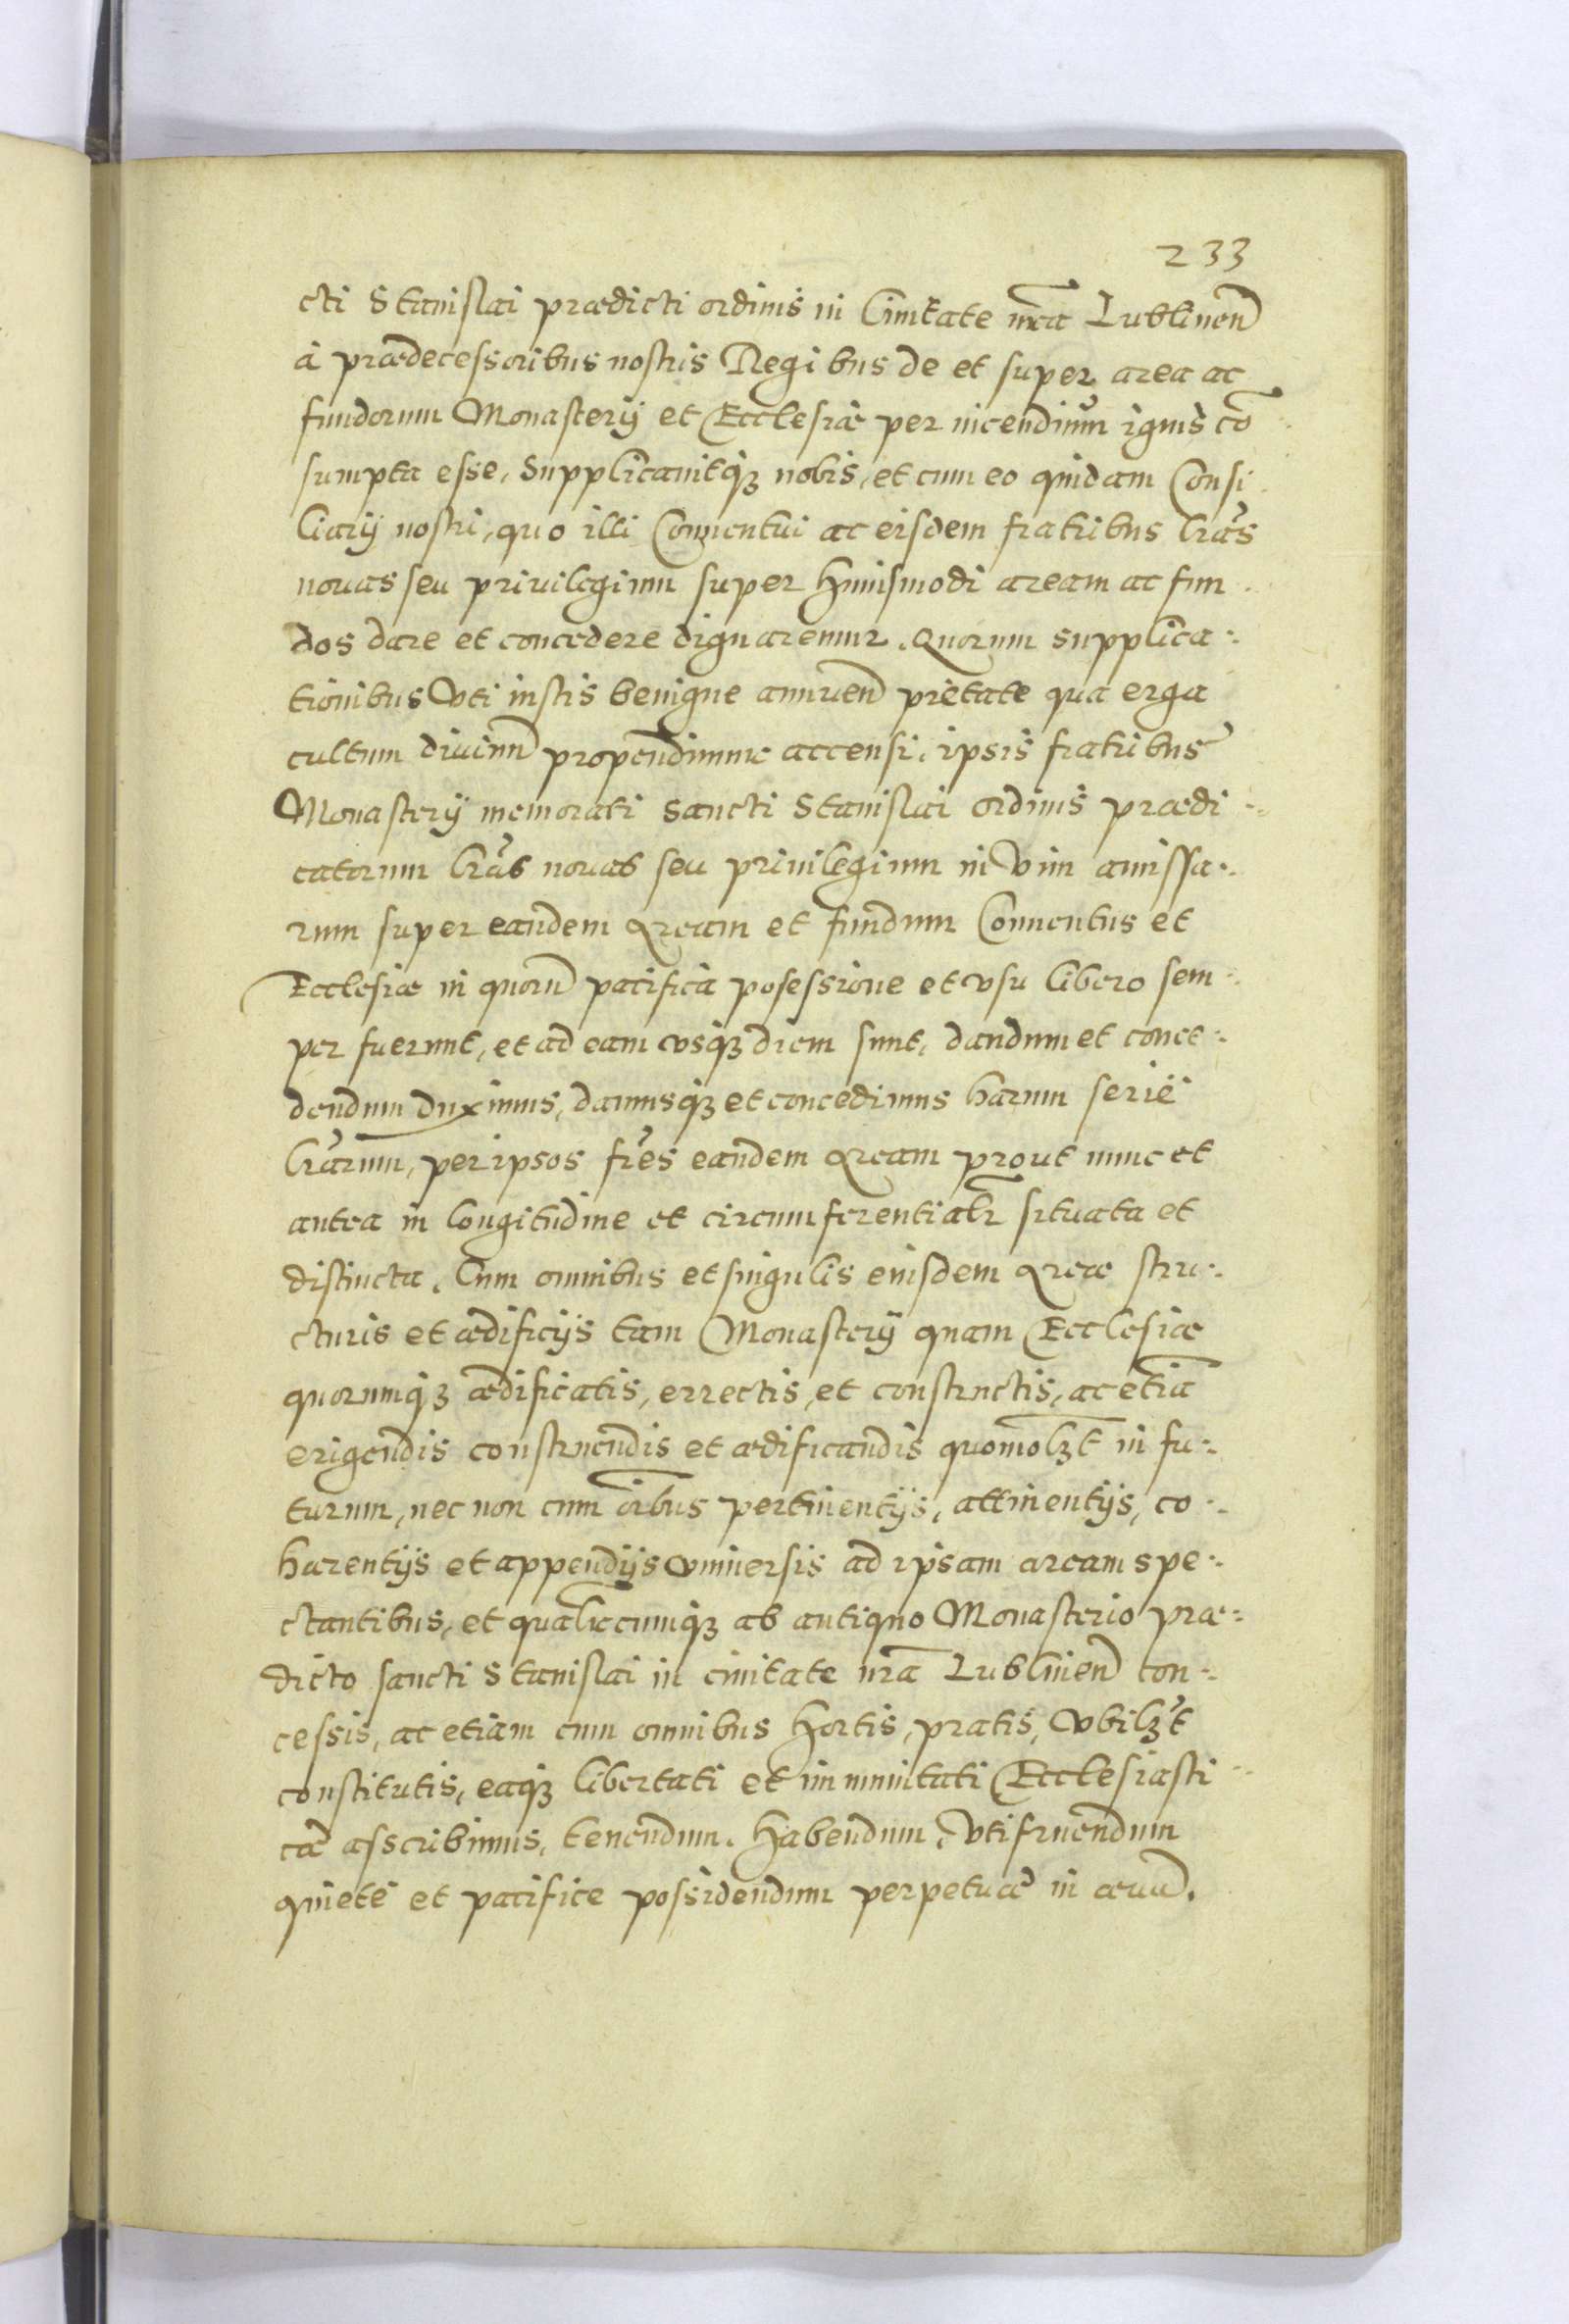 233
cti Stanislai prædicti ordinis in Ciuitate nr̃a Lublineñ
à prædecessoribus nostris Regibus de et super area ac
fundorum Monasterij et Ecclesiæ per incendium ignis cõ
sumpta esse, supplicauitq̃ nobis, et cum eo quidam Consi
liarij nostri, quo illi Conuentui ac eisdem fratribus lr̃as
nouas seu priuilegium super huiusmodi aream ac fun
dos dare et concedere dignaremur. Quorum supplica-
tionibus vti iustis benigne annueñ pietate qua erga
cultum diuinũ propendimur accensi, ipsis fratribus
Monasterij memorati sancti Stanislai ordinis prædi-
catorum lr̃as nouas seu priuilegium in vim amissa-
rum super eandem Aream et fundum Conuentus et
Ecclesiæ in quorũ pacifica posessione et vsu libero sem-
per fuerunt, et ad eam vsq̃ diem sunt, dandum et conce-
dendum duximus, damusq̃ et concedimus harum serie
lr̃arum, per ipsos fr̃es eandem Aream prout nunc et
antea in longitudine et circumferentialr̃ situata et
distincta. Cum omnibus et singulis eiusdem Areæ stru-
cturis et ædificijs tam Monasterij quam Ecclesiæ
quorumq̃ ædificatis, errectis, et constructis, ac etiã
erigendis construendis et ædificandis quomolʒt in fu-
turum, nec non cum oĩbus pertinentijs, attinentijs, co-
hærentijs et appendijs vniuersis ad ipsam aream spe-
ctantibus, et qualiacumq̃ ab antiquo Monasterio præ-
dicto sancti Stanislai in ciuitate nr̃a Lublineñ con-
cessis, ac etiam cum omnibus hortis, pratis, vbilʒt
constitutis, eaq̃ libertati et immunitati Ecclesiasti
cæ asscribimus, tenendum. habendum, vtifruendum
quiete et pacifice possidendum perpetuæ in æuũ.